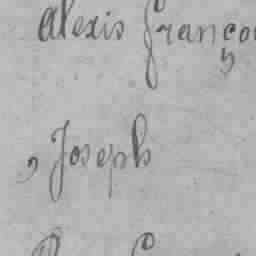 Alexis Franço
, Joseph